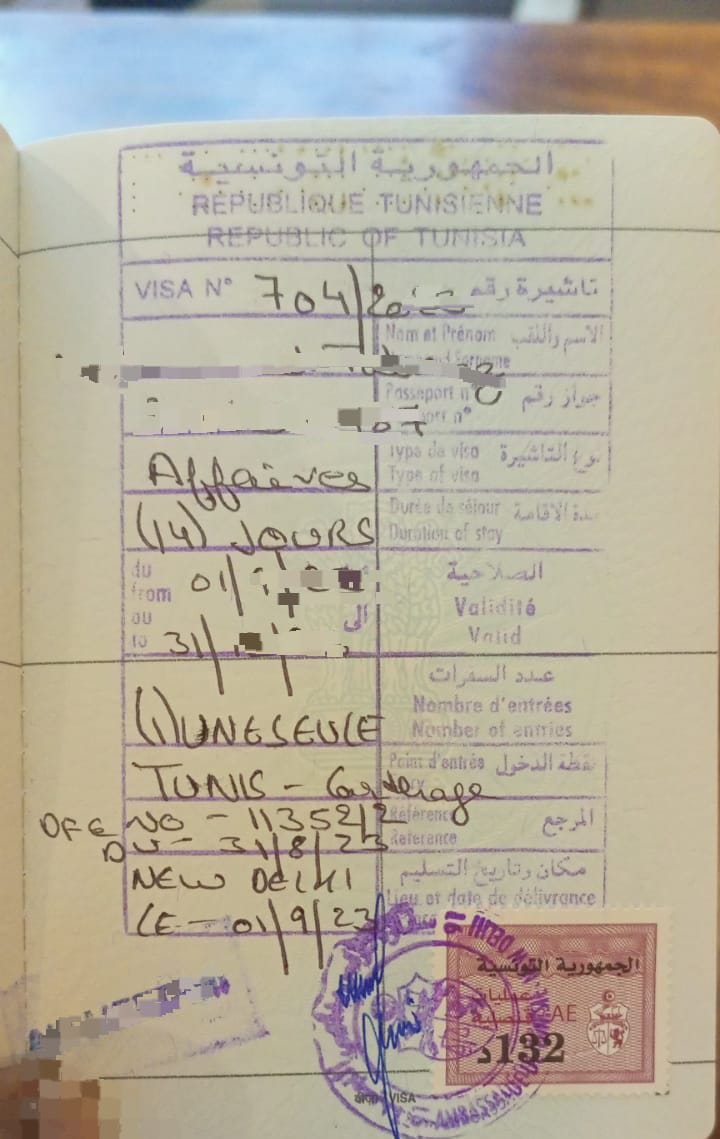 الجمهورية التونسية
RÉPUBLIQUE TUNISIENNE
REPUBLIC OF TUNISIA
VISA N° 704/ تاشيرة رقم
Nom et Prénom الاسم واللقب
Surname
Passeport n° جواز رقم
n°
Affaires Type de visa نوع التاشيرة
Type of visa
(14) JOURS Durée de séjour مدة الاقامة
Duration of stay
du
from 01/ الصلاحية
au الى Validité
to 31/ Valid
عدد السفرات
Nombre d'entrées
(1) UNE SEULE Number of entries
TUNIS - Carthage Point d'entrée نقطة الدخول
NO - 11352/2 Référence المرجع
DU - 31/8/23 Reference
NEW DELHI مكان وتاريخ التسليم
Lieu et date de délivrance
LE - 01/9/23
الجمهورية التونسية
AE
132 د
वीज़ा VISA